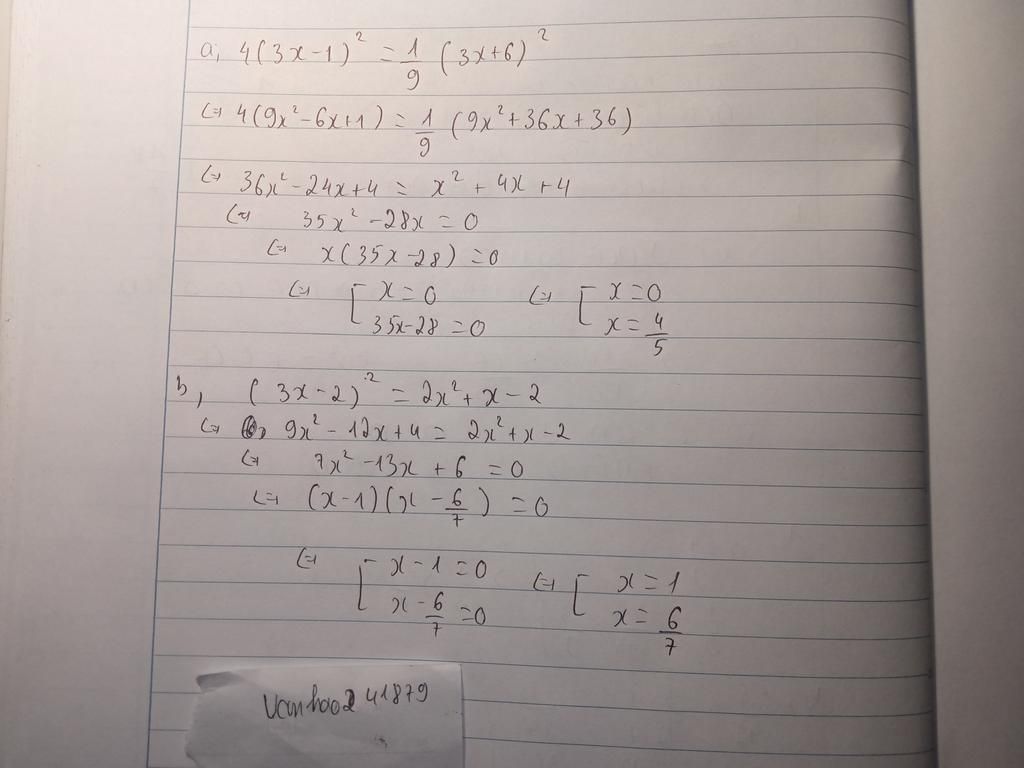 a, 4(3x-1)² = 1/9 (3x+6)²
<=> 4(9x²-6x+1) = 1/9 (9x²+36x+36)
<=> 36x²-24x+4 = x²+4x+4
<=> 35x²-28x=0
<=> x(35x-28)=0
<=> [ x=0 <=> [ x=0
35x-28=0 x=4/5
b, (3x-2)² = 2x²+x-2
<=> 9x²-12x+4 = 2x²+x-2
<=> 7x²-13x+6=0
<=> (x-1)(x-6/7)=0
<=> [ x-1=0 <=> [ x=1
x-6/7=0 x=6/7